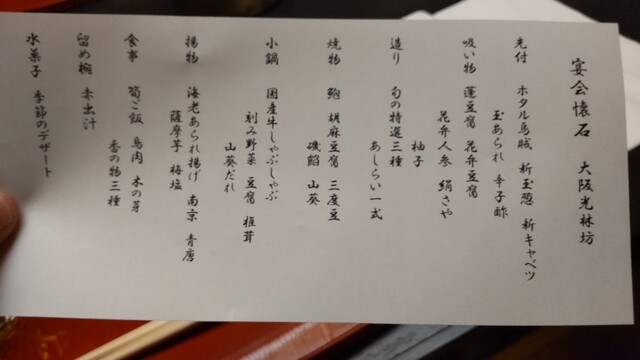 宴会懐石　大阪光林坊
先付　ホタル烏賊　新玉葱　新キャベツ
玉あられ　辛子酢
吸い物　蓬豆腐　花弁豆腐
花弁人参　絹さや
柚子
造り　旬の特選三種
あしらい一式
焼物　鮑　胡麻豆腐　三度豆
磯餡　山葵
小鍋　国産牛しゃぶしゃぶ
刻み野菜　豆腐　椎茸
山葵だれ
揚物　海老あられ揚げ　南京　青唐
薩摩芋　梅塩
食事　筍ご飯　鳥肉　木の芽
香の物三種
留め椀　赤出汁
水菓子　季節のデザート